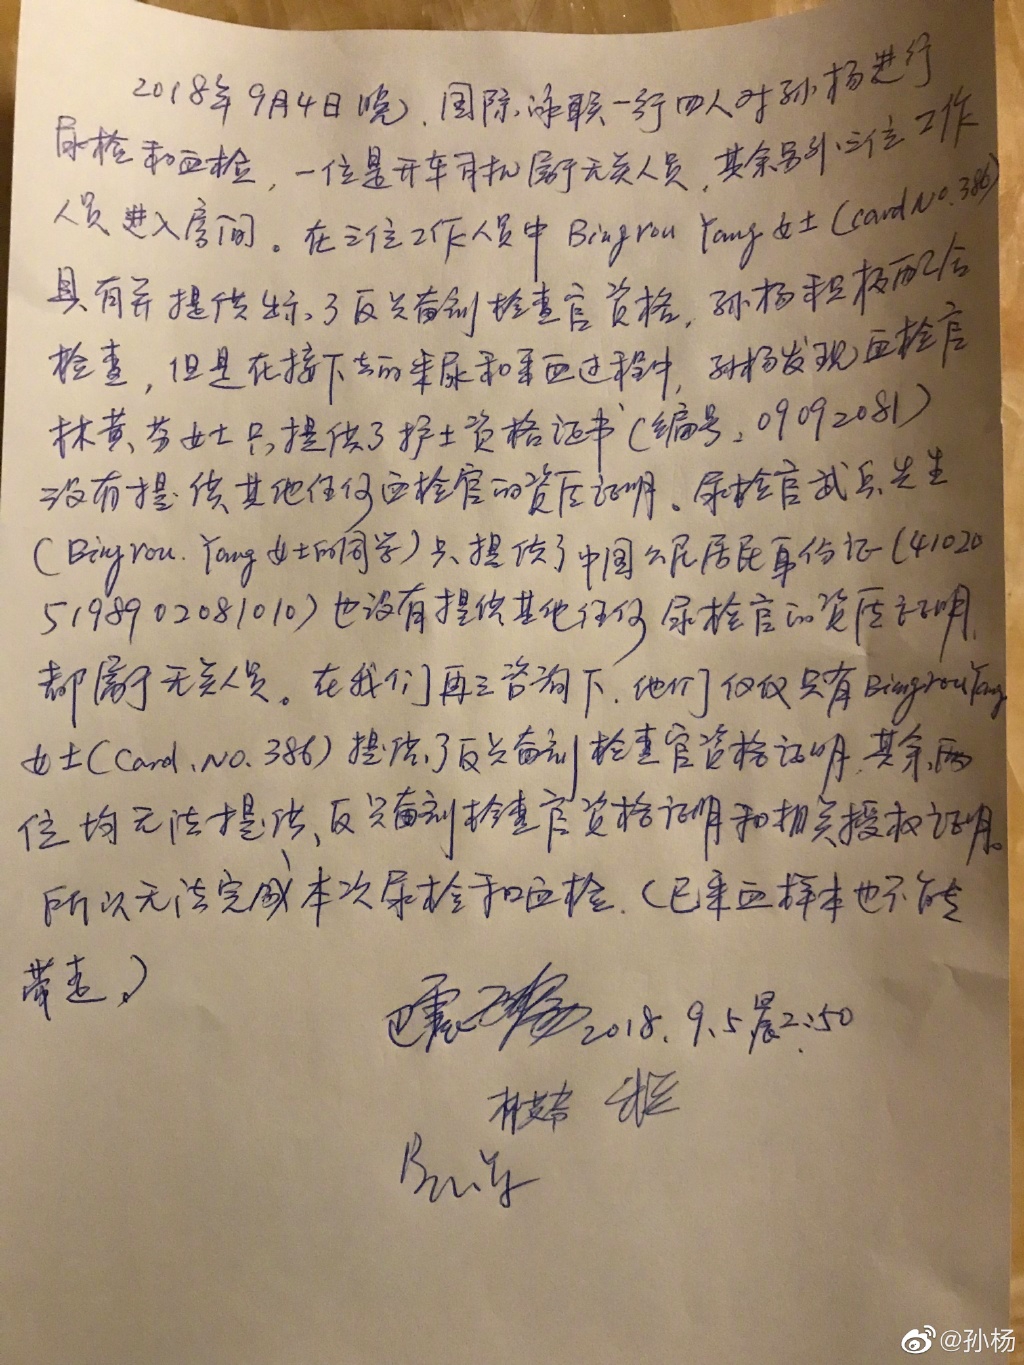 2018年9月4日晚，国际泳联一行四人对孙杨进行
尿检和血检，一位是开车司机属于无关人员，其余另外三位工作
人员进入房间。在三位工作人员中 Bingrou Yang 女士（card No.386）
具有并提供出示了反兴奋剂检查官资格，孙杨积极配合
检查，但是在接下去的采尿和采血过程中，孙杨发现血检官
林黄芬女士只提供了护士资格证书（编号：09092081）
没有提供其他任何血检官的资质证明。尿检官武兵先生
（Bingrou. Yang 女士的同学）只提供了中国公民居民身份证（41020
5198902081010）也没有提供其他任何尿检官的资质证明，
都属于无关人员。在我们再三咨询下，他们仅仅只有Bingrou Yang
女士（Card.No.386）提供了反兴奋剂检查官资格证明，其余两
位均无法提供反兴奋剂检查官资格证明和相关授权证明。
所以无法完成本次尿检和血检.（已采血样本也不能
带走。）
巴震 2018.9.5晨2:50
@孙杨